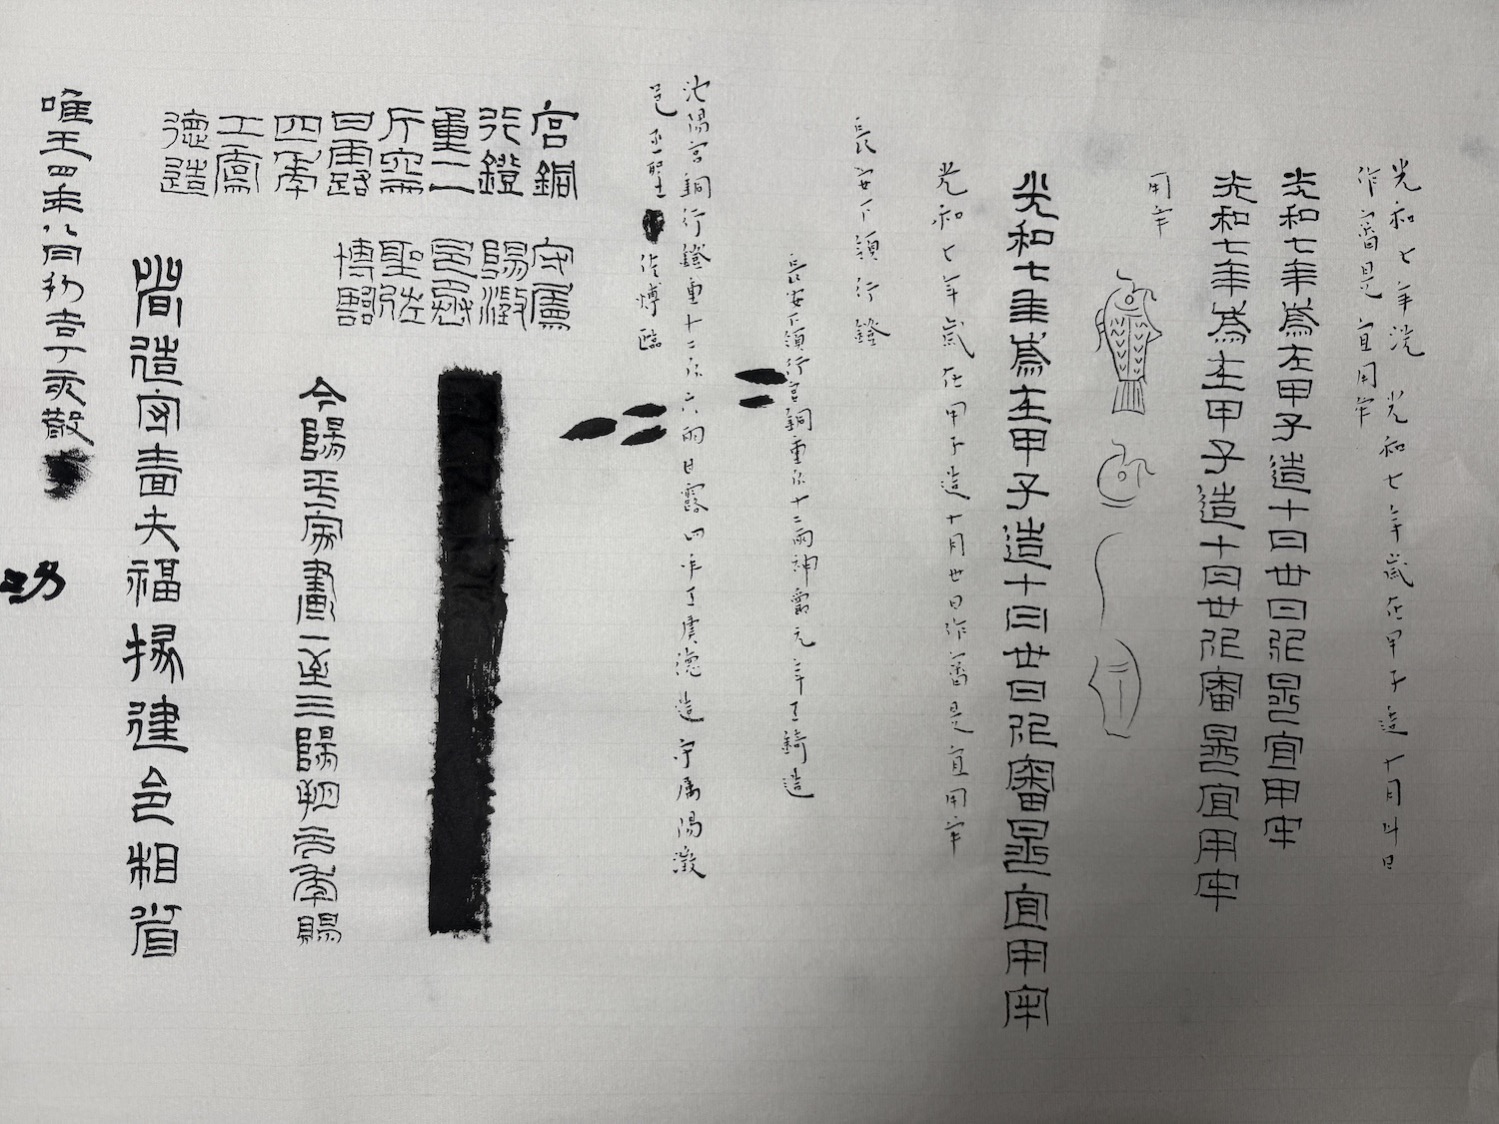 光和七年洗
光和七年歲在甲子造十月廿日
作審是宜用牢
光和七年歲在甲子造十月廿日作是宜用牢
光和七年歲在甲子造十月廿作審是宜用牢
用牢
光和七年歲在甲子造十月廿日作審是宜用牢
光和七年歲在甲子造十月廿日作審是宜用牢
長安下領行鐙
長安下領行宮銅重斤十二兩神爵元年工錡造
池陽宮銅行鐙重十二斤六兩甘露四年工虞德造守屬陽澂
邑丞聖佐博臨
宮銅
行鐙
重二
斤
甘露
四年
工
德造
守屬
陽澂
邑丞
聖佐
博臨
今陽平家畫一至三陽朔元年賜
造守嗇夫福掾建令相省
唯王四年八月初吉丁亥散
功